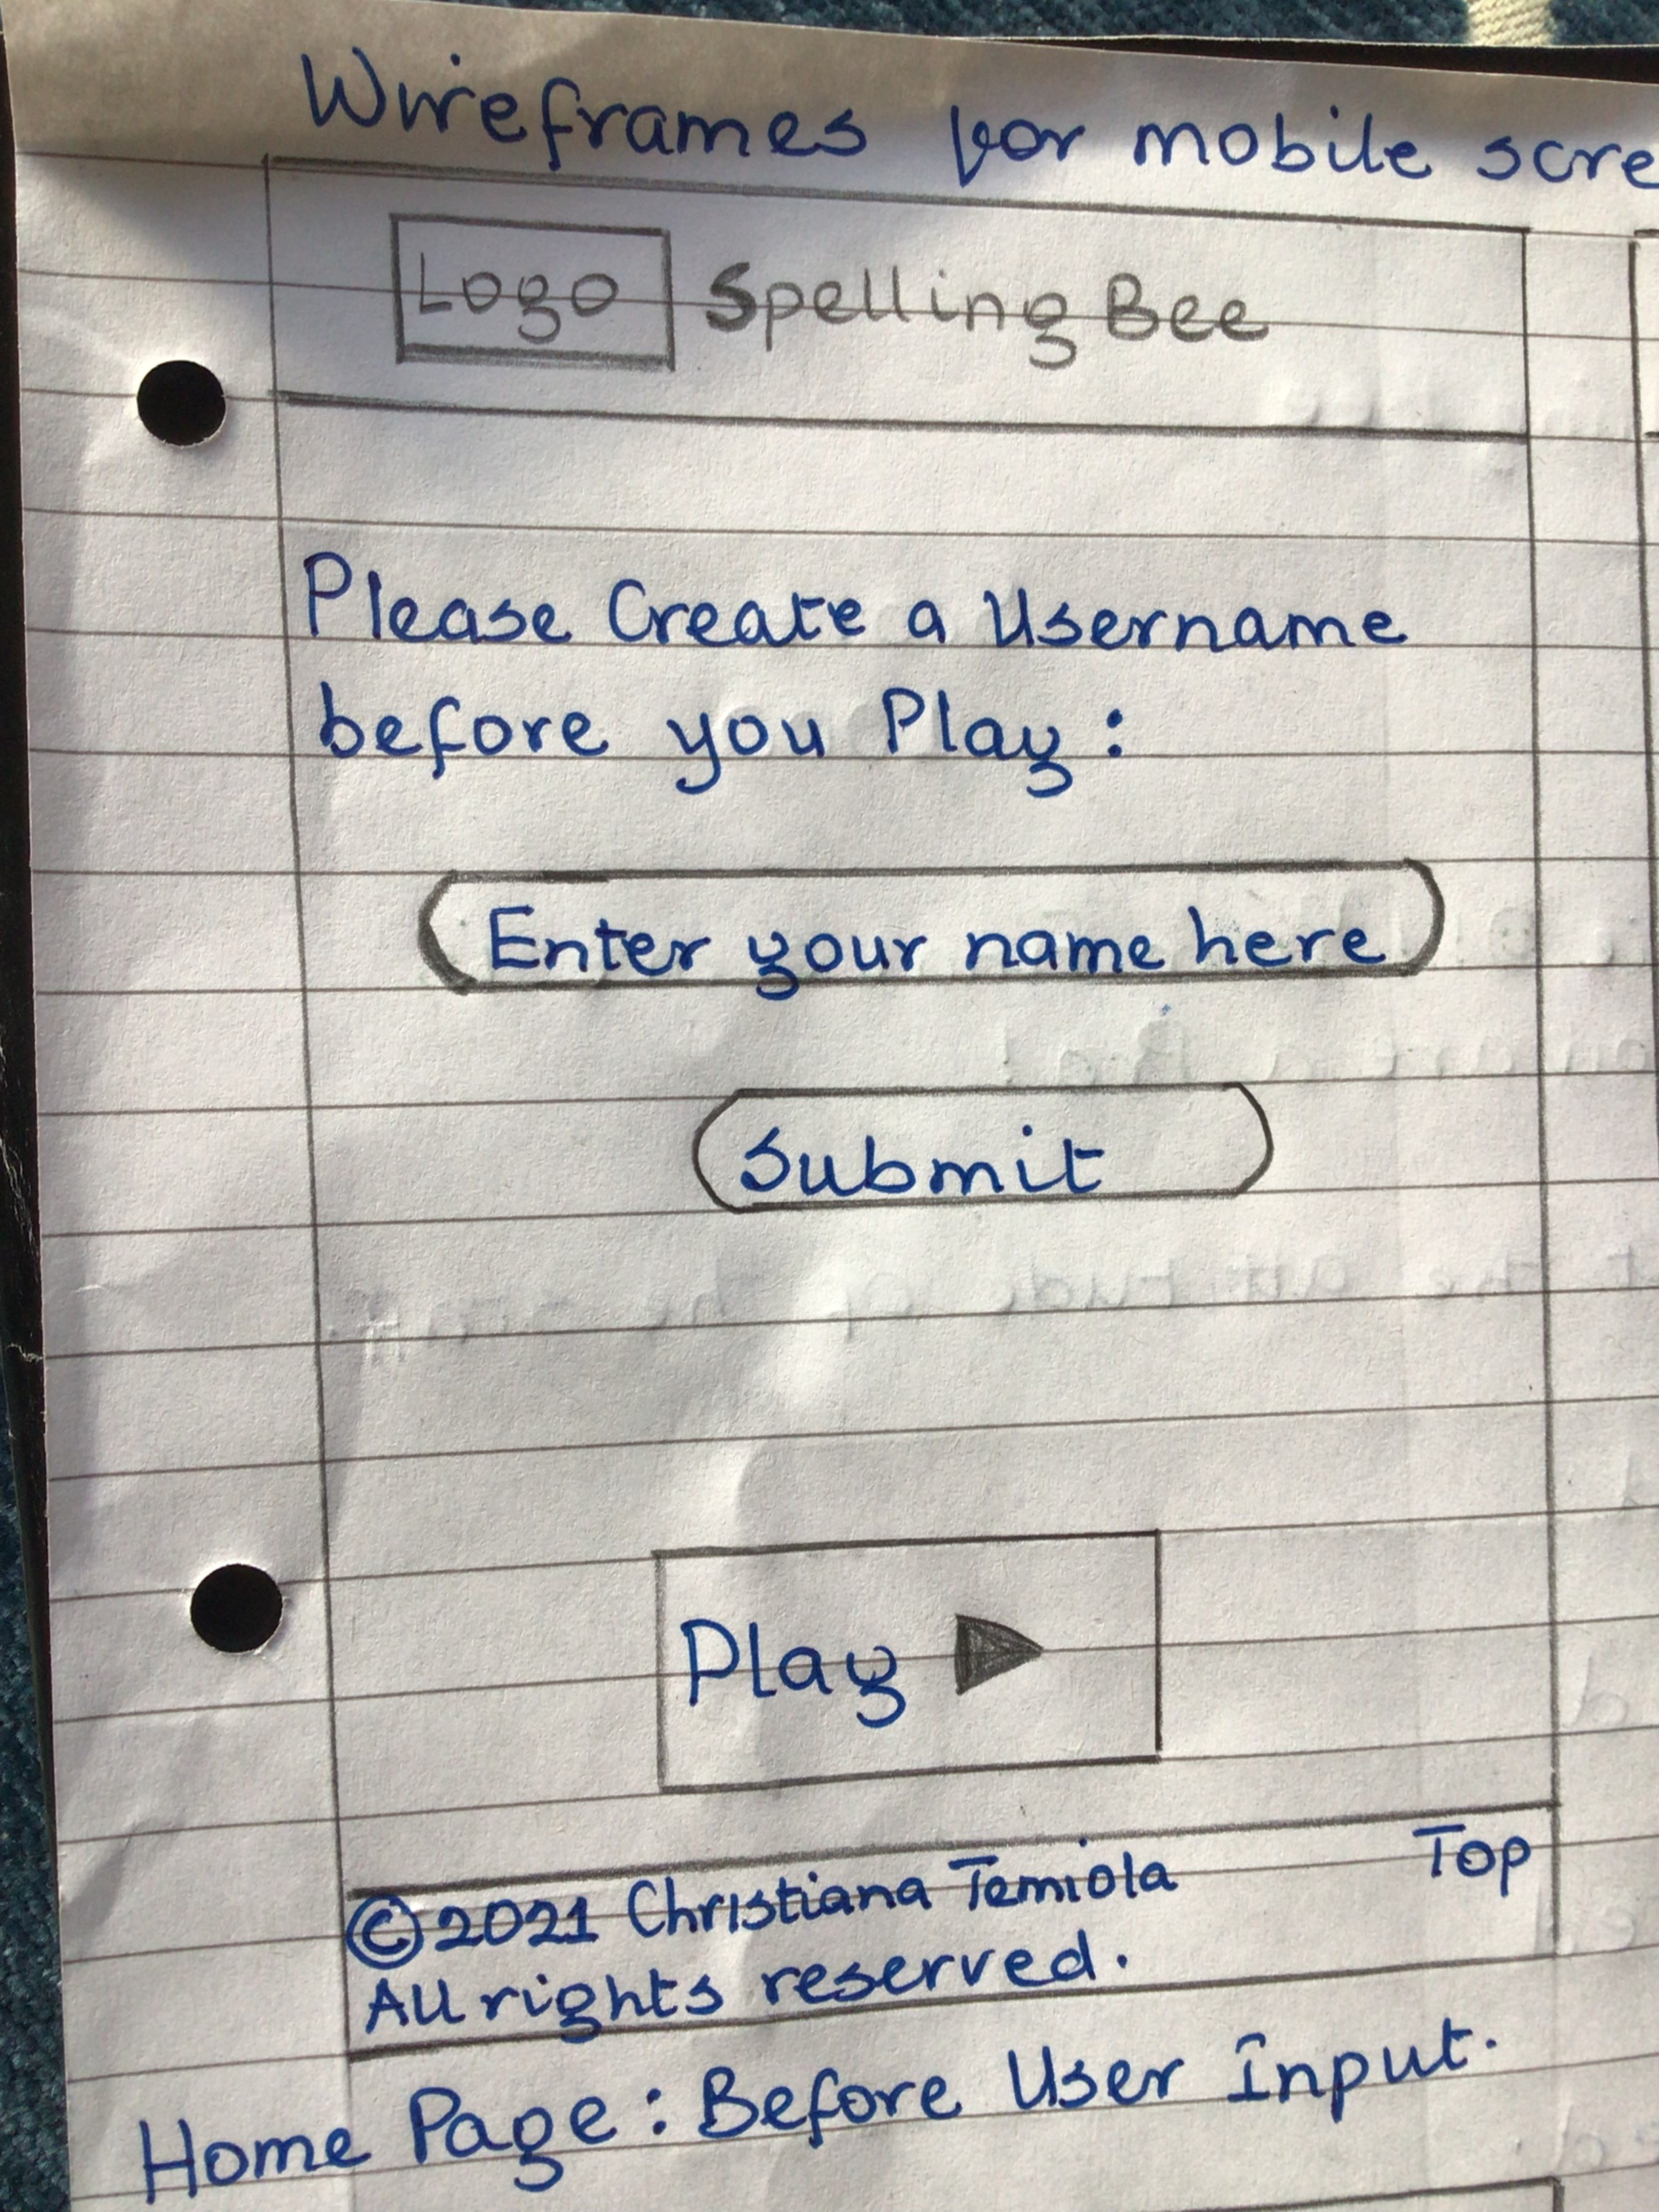 Wireframes for mobile scre
Logo Spelling Bee
Please Create a Username
before you Play :
Enter your name here
Submit
Play
©2021 Christiana Temiola Top
All rights reserved.
Home Page : Before User Input.